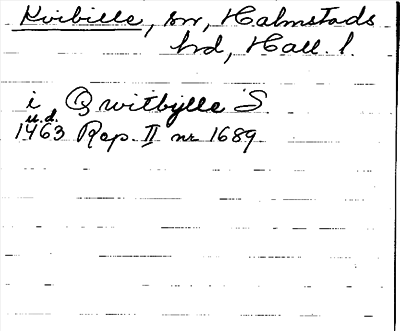 Kvibille, sn, Halmstads
hd, Hall. l.
i Qwitbylle S.
u.d.
1463 Rep. II nr 1689